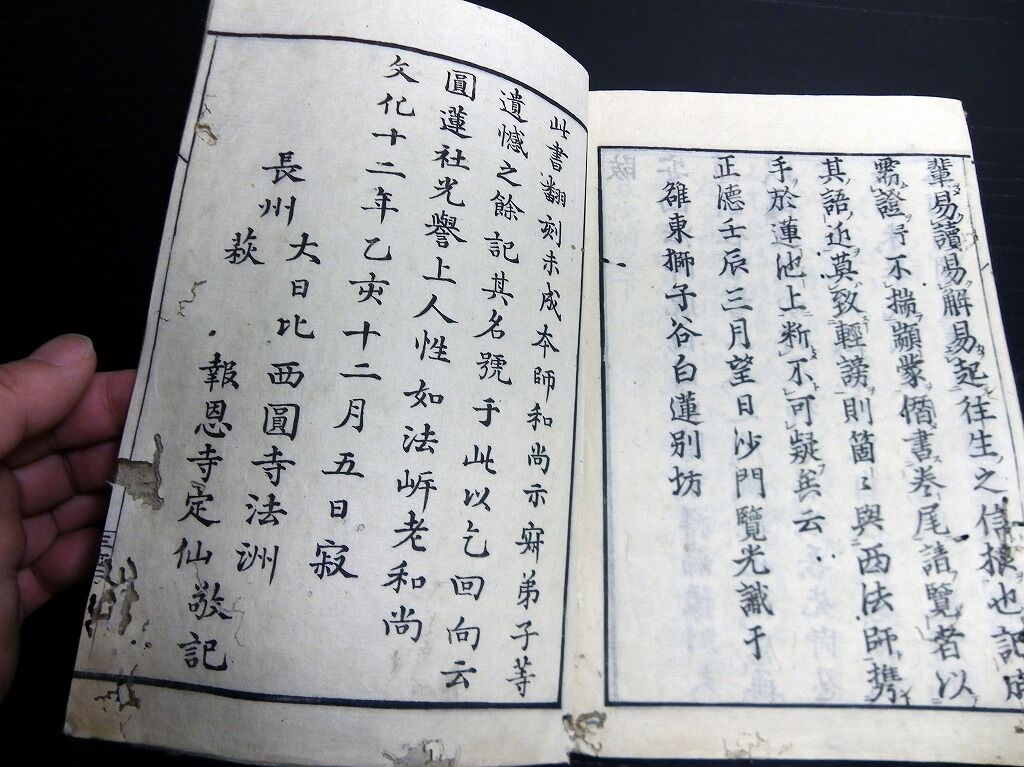 輩易讀易解易起往生之信㨿也記成
需證予不揣顓蒙僭書卷尾請覽者以
其語近莫致輕謗則箇〻與西法師携
手於蓮池上斷不可疑矣云
正德壬辰三月望日沙門覽光識于
雒東獅子谷白蓮別坊
此書翻刻未成本師和尚示寂弟子等
遺憾之餘記其名號于此以乞回向云
圓蓮社光譽上人性如法岸老和尚
文化十二年乙亥十二月五日寂
長州大日比西圓寺法洲
萩報恩寺定仙敬記